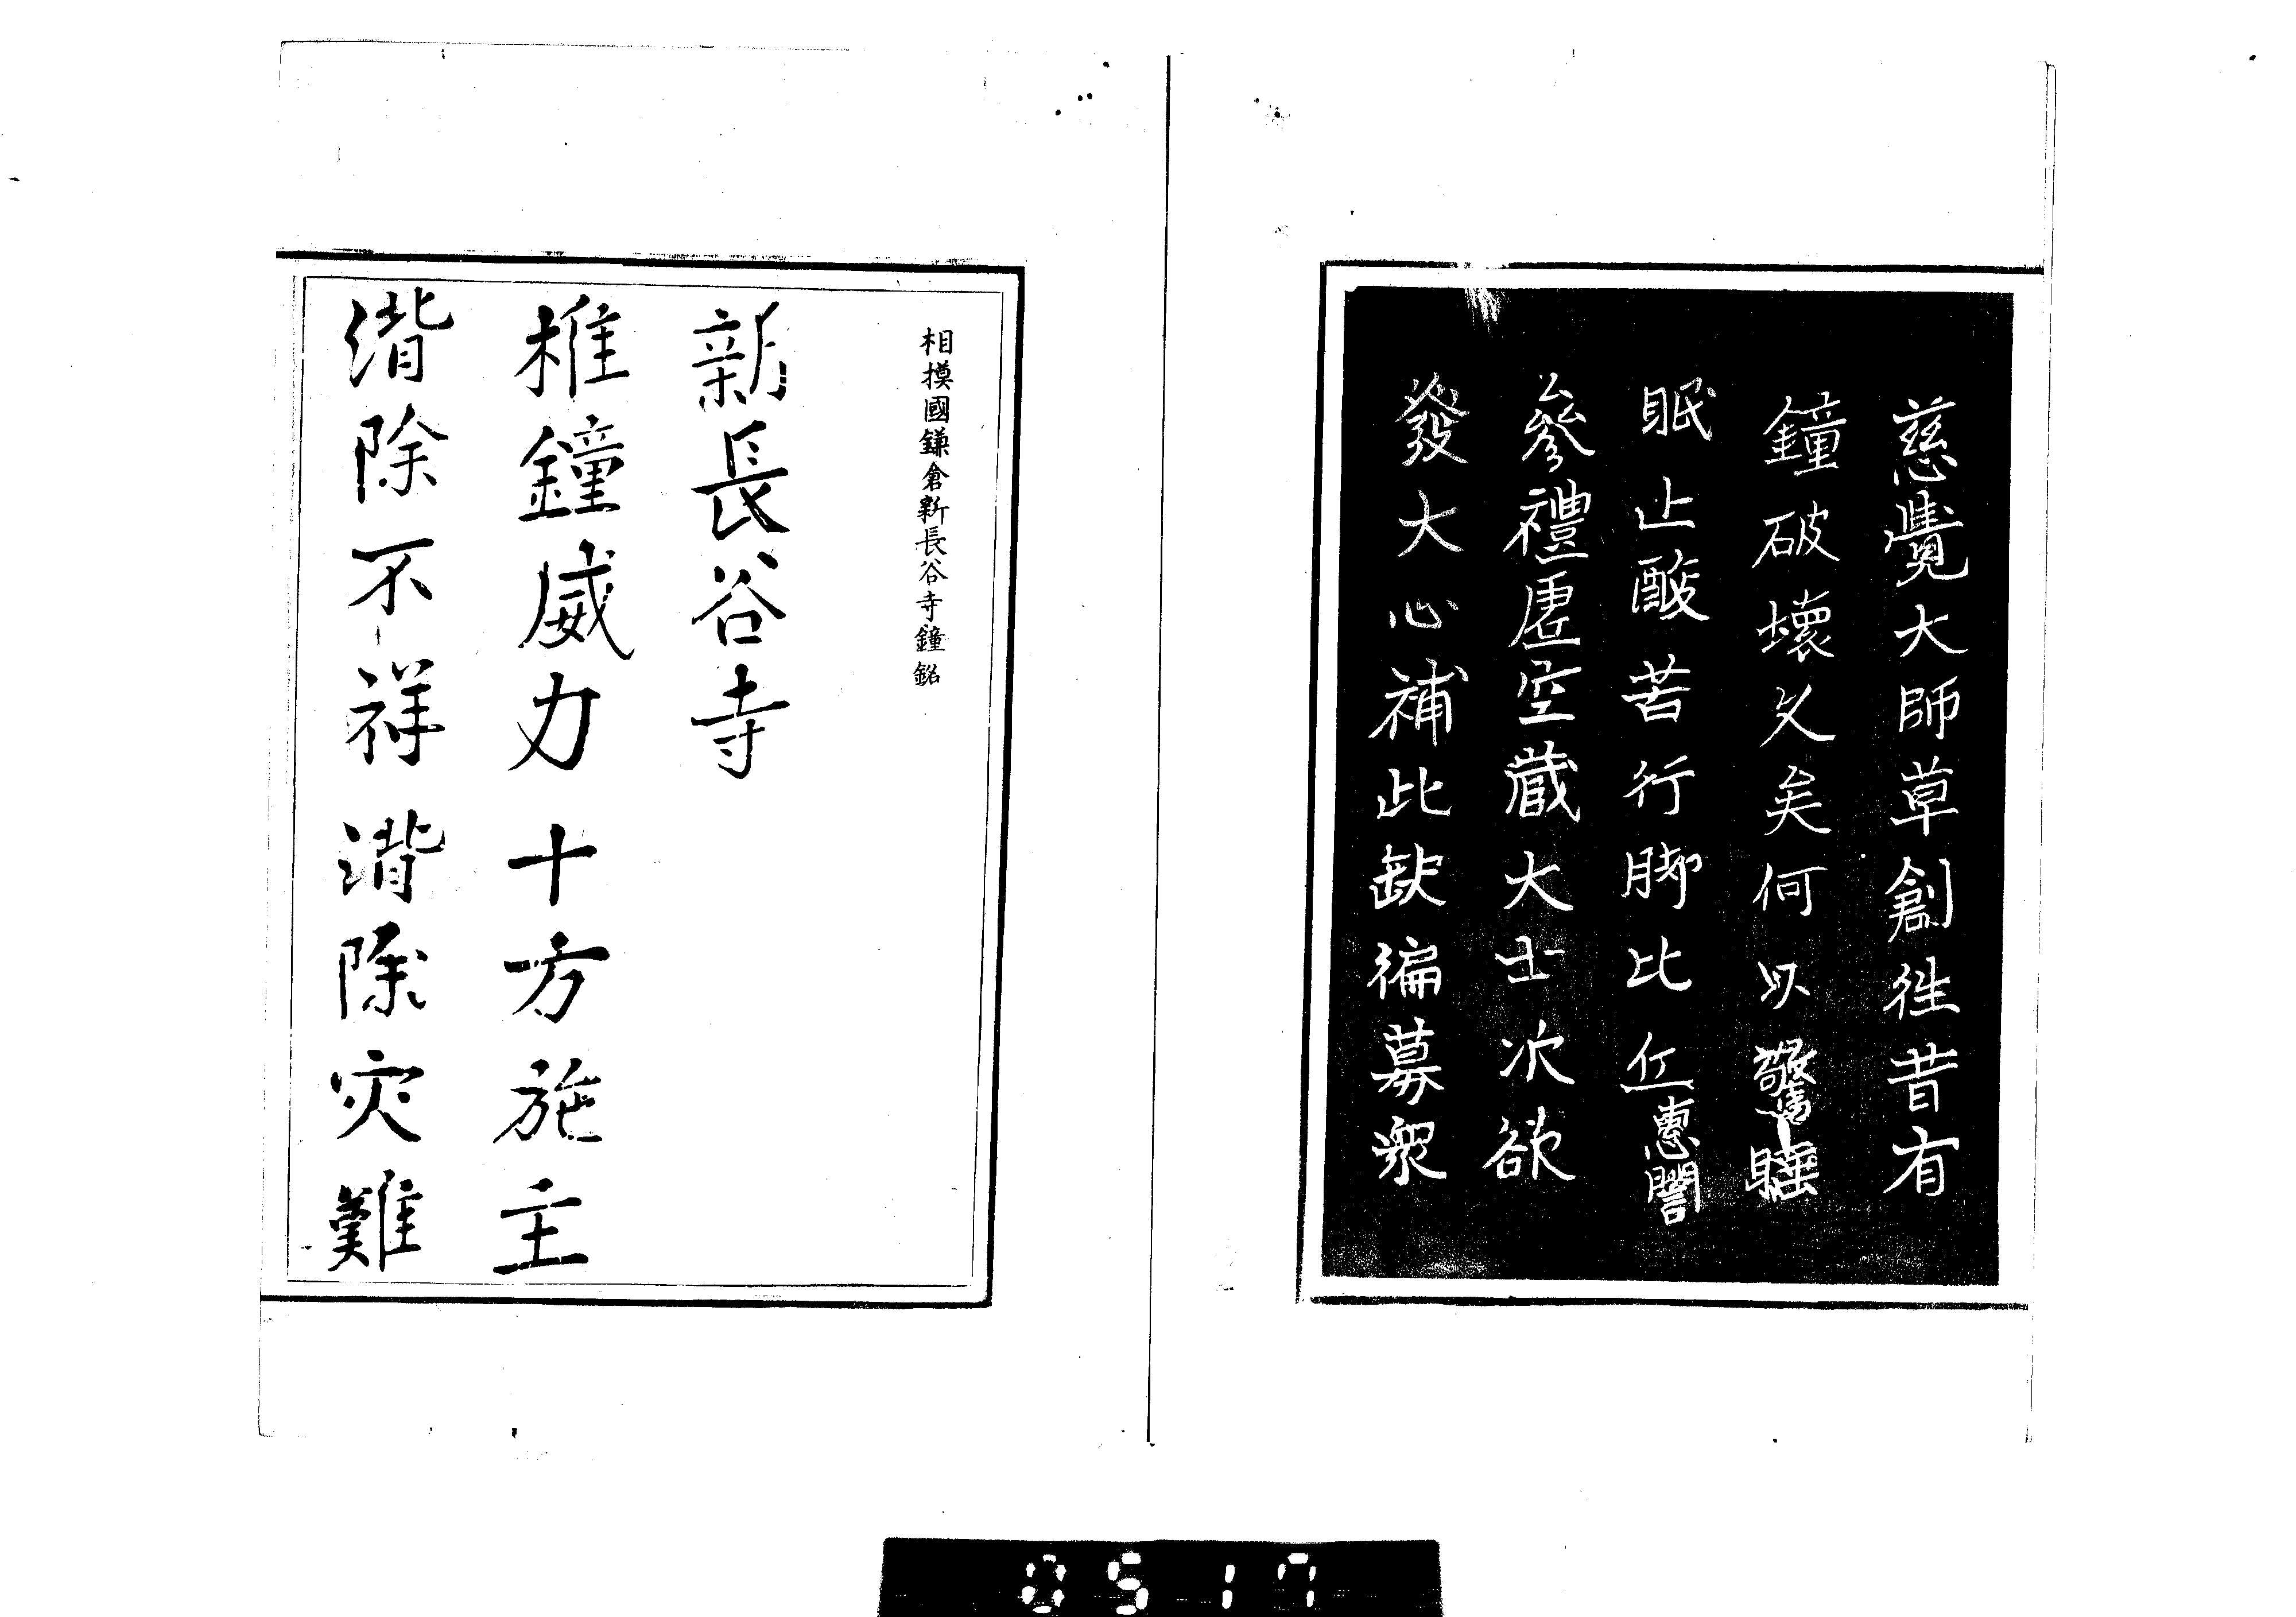 慈覺大師草創徃昔有
鐘破壞久矣何以驚睡
眠止酸苦行脚比丘惠誾
參禮虛空藏大士次欲
發大心補此缺徧募衆
相摸國鎌倉新長谷寺鐘銘
新長谷寺
椎鐘威力十方施主
消除不祥消除灾難
0517